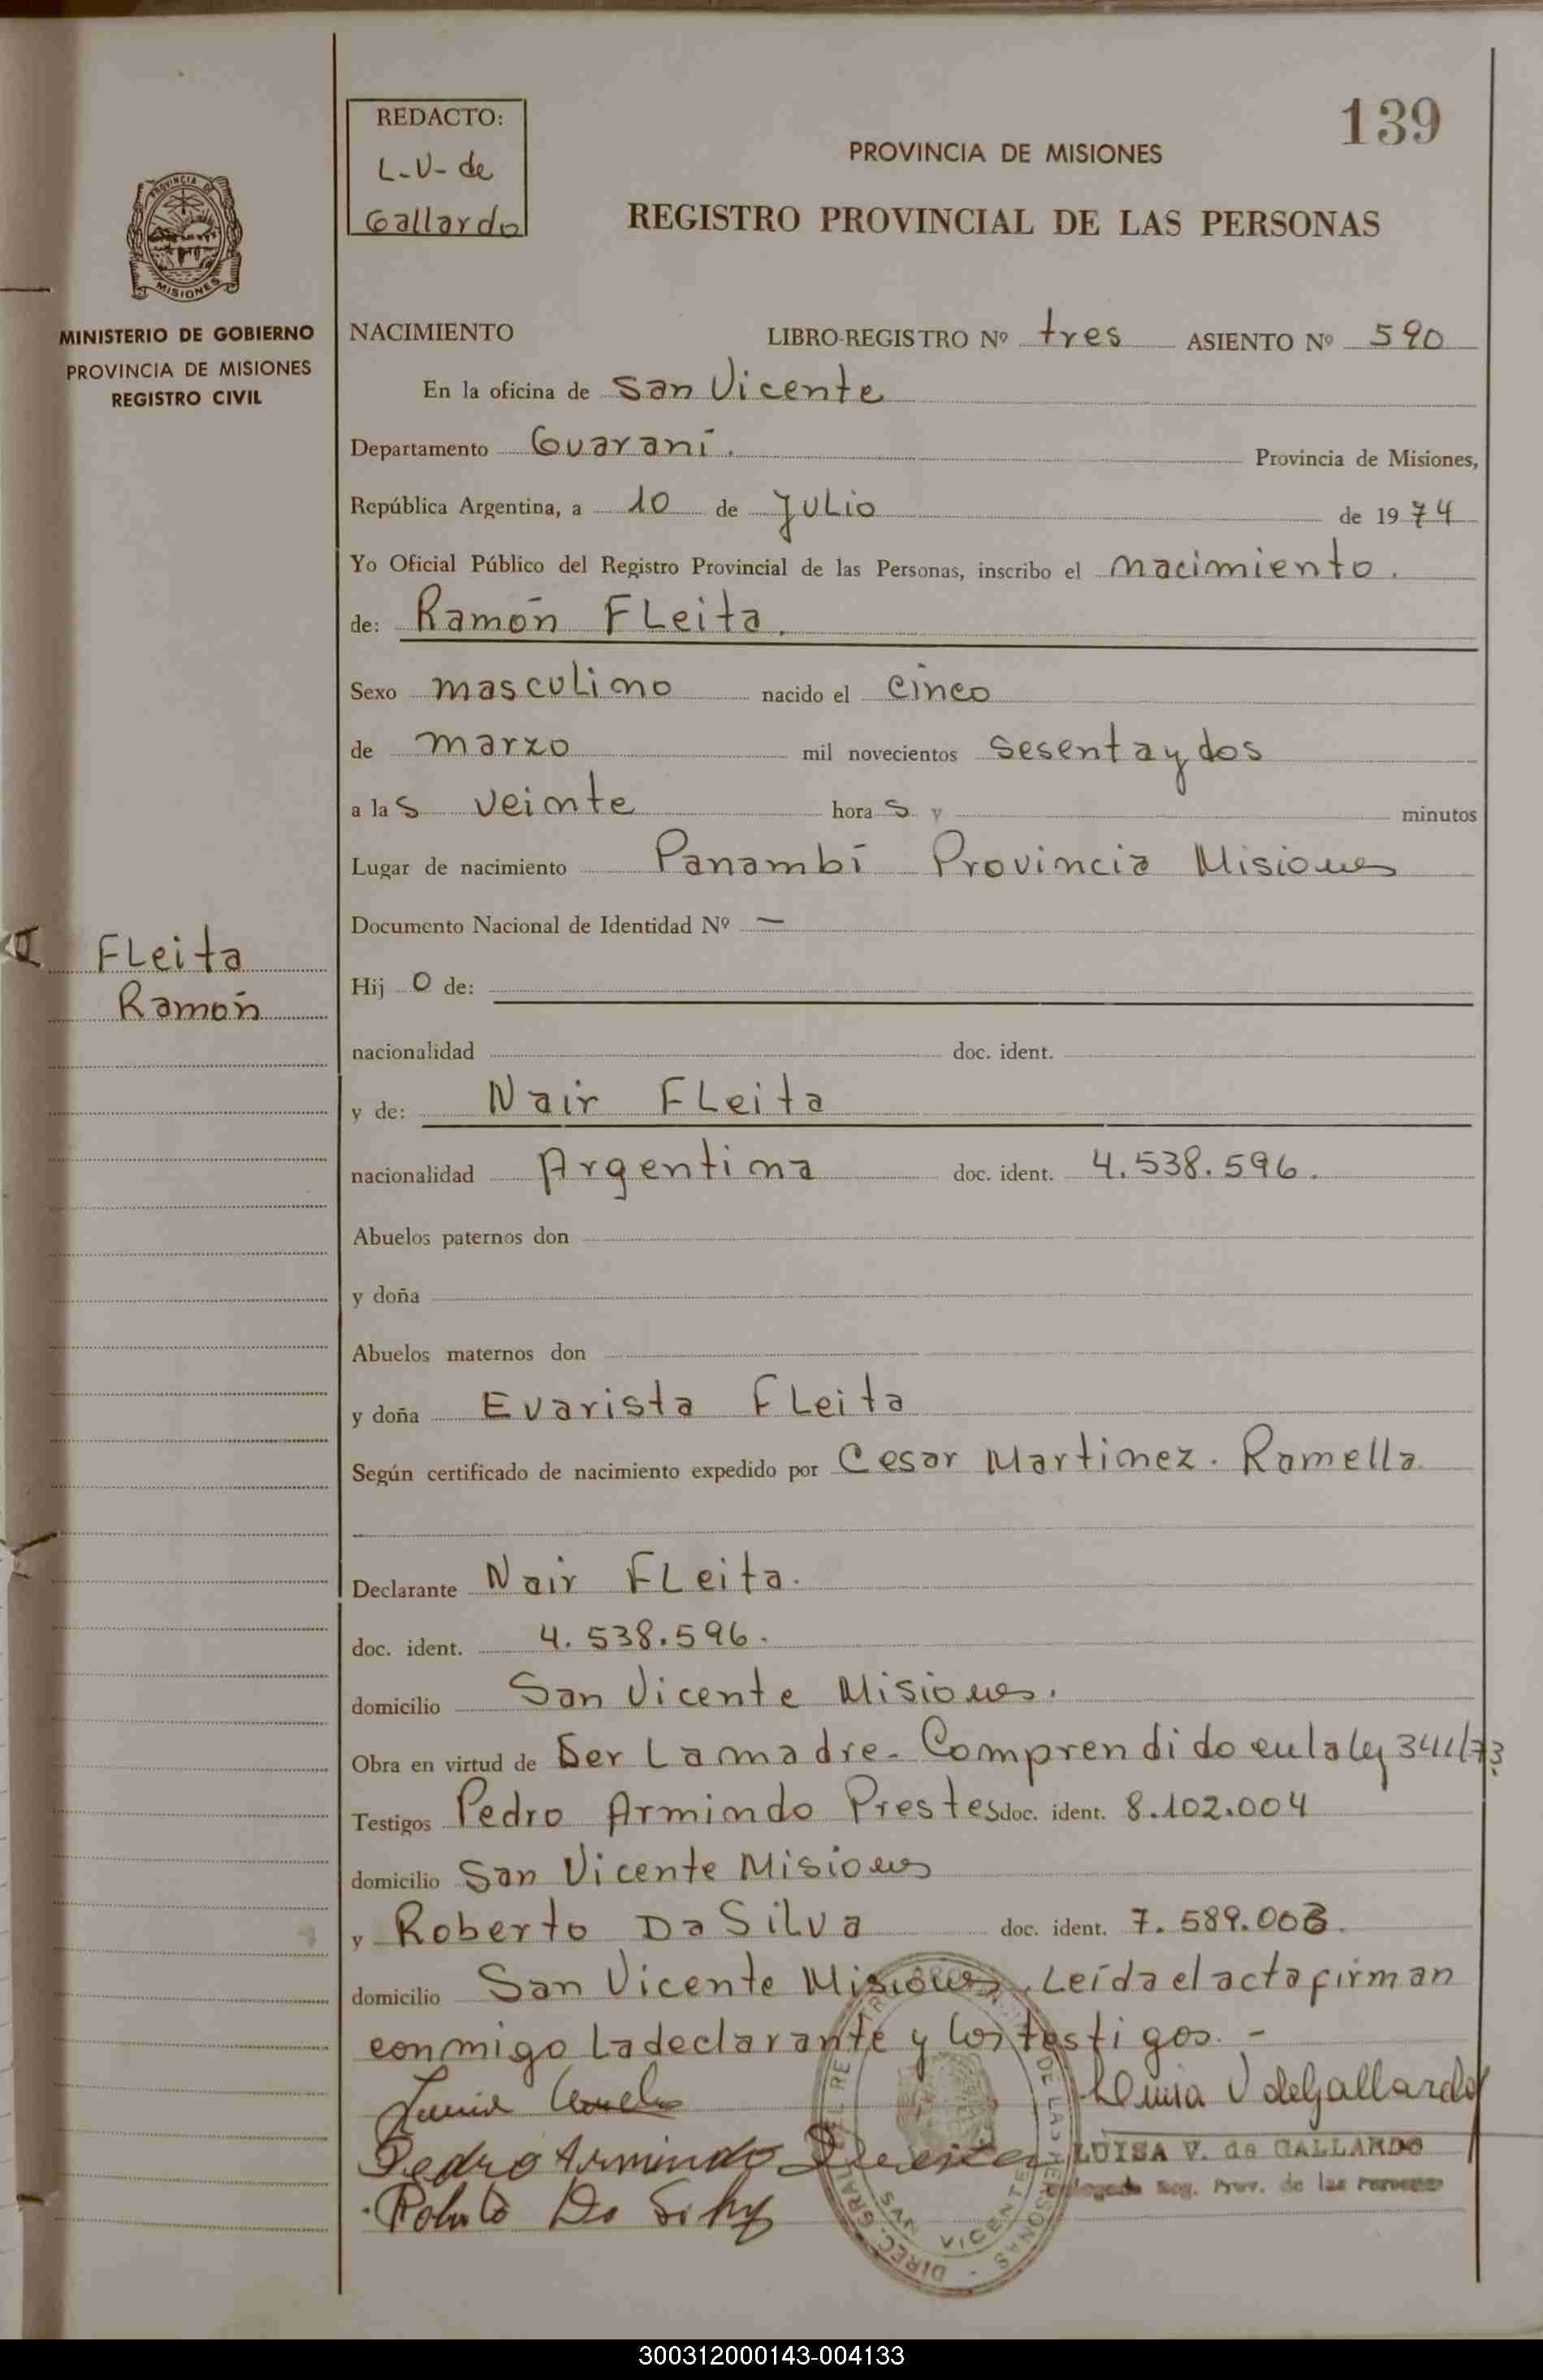 139
REDACTO:
L-V- de
Gallardo
PROVINCIA DE MISIONES
REGISTRO PROVINCIAL DE LAS PERSONAS
PROVINCIA DE
MISIONES
MINISTERIO DE GOBIERNO
PROVINCIA DE MISIONES
REGISTRO CIVIL
NACIMIENTO LIBRO-REGISTRO Nº tres ASIENTO Nº 590
En la oficina de San Vicente
Departamento Guaraní. Provincia de Misiones,
República Argentina, a 10 de Julio de 1974
Yo Oficial Público del Registro Provincial de las Personas, inscribo el nacimiento.
de: Ramón FLeita.
Sexo masculino nacido el cinco
de marzo mil novecientos sesenta y dos
a las veinte horas y minutos
Lugar de nacimiento Panambí Provincia Misiones
Documento Nacional de Identidad Nº —
FLeita
Ramón
Hijo de:
nacionalidad doc. ident.
y de: Nair FLeita
nacionalidad Argentina doc. ident. 4.538.596.
Abuelos paternos don
y doña
Abuelos maternos don
y doña Evarista FLeita
Según certificado de nacimiento expedido por Cesar Martinez. Ramella
Declarante Nair FLeita.
doc. ident. 4.538.596.
domicilio San Vicente Misiones.
Obra en virtud de Ser La madre- Comprendido en la ley
Testigos Pedro Armindo Prestes doc. ident. 8.102.004
domicilio San Vicente Misiones
y Roberto Da Silva doc. ident. 7.589.003.
domicilio San Vicente Misiones. Leída el acta firman
conmigo La declarante y los testigos.-
Luisa V de Gallardo
Pedro Armindo
LUISA V. de GALLARDO
Reg. Prov. de las Personas
Roberto Da Silva
SAN VICENTE
300312000143-004133